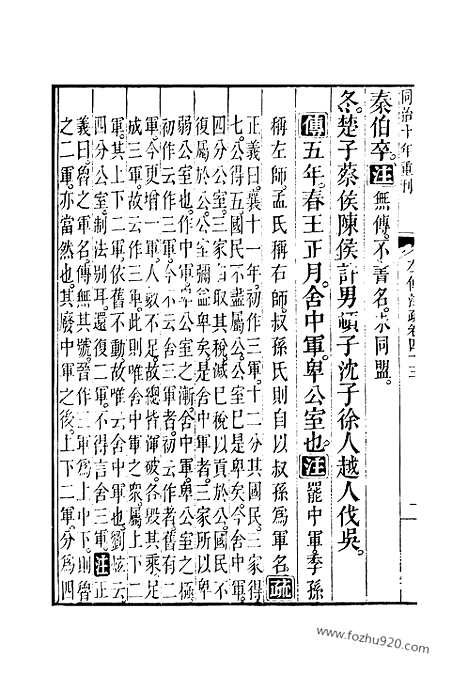 同治十年重刊
左傳注疏卷四十三
二
秦伯卒。注無傳。不書名。未同盟。
冬。楚子蔡侯陳侯許男頓子沈子徐人越人伐吳。
傳五年。春王正月。舍中軍。卑公室也。注罷中軍。季孫
稱左師。孟氏稱右師。叔孫氏則自以叔孫爲軍名。疏
正義曰。襄十一年。初作三軍。十二分其國民。三家得
七。公得五。國民不盡屬公。公室已是卑矣。今舍中軍。
四分公室。三家自取其稅。減已稅以貢於公。國民不
復屬於公。公室彌益卑矣。是舍中軍者。三家所以卑
弱公室也。作中軍。卑公室之漸。舍中軍。卑公室之極。
初作云作三軍。今不云舍三軍者。初云作者舊有二
軍。今更增一軍。人數不足。故總皆渾破。各毀其乘。足
成三軍。故云作三軍。此則唯舍中軍之衆。屬上下二
軍。其上下二軍。依舊不動。故云舍中軍也。劉炫云。
四分公室。制法别耳。還復二軍。不得言舍三軍。注正
義曰。魯之軍名。傳無其號。晉作三軍爲上中下。則魯
之二軍。亦當然也。其廢中軍之後。上下二軍。分爲四
www.fozhu920.com